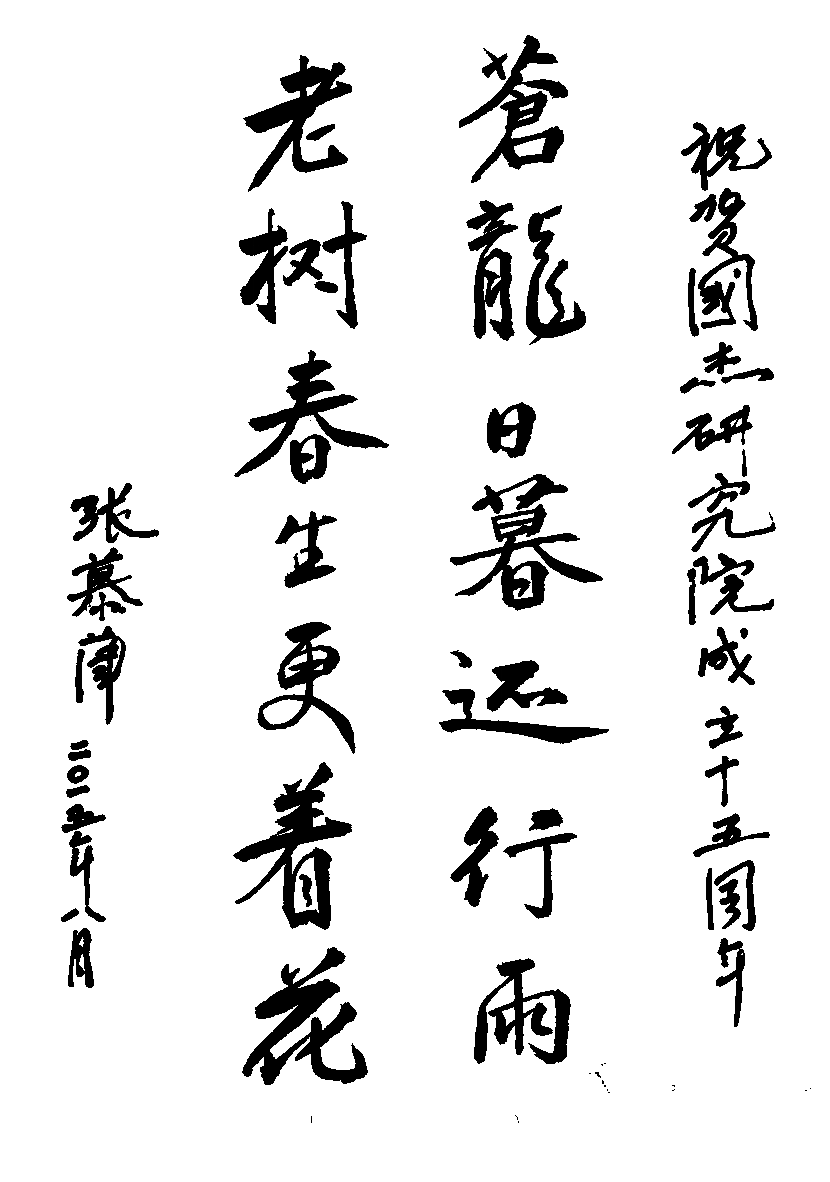 祝贺國杰研究院成立十五周年
蒼龍日暮还行雨
老树春生更着花
张慕葏 二〇一五年八月